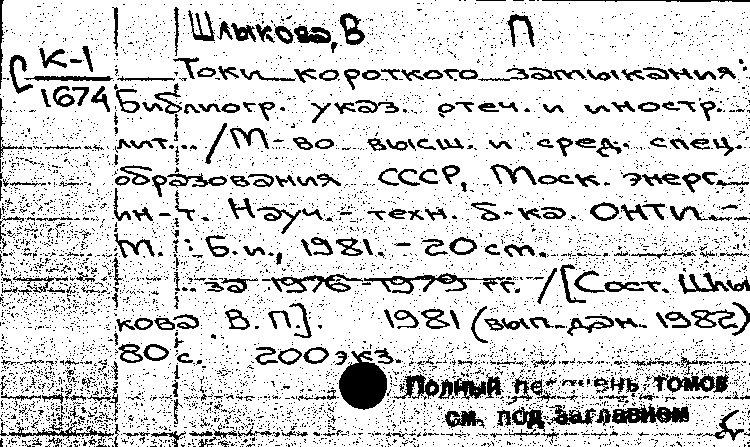 Шлыкова, В П
К-1
1674
Токи короткого замыкания:
Библиогр. указ. отеч. и иностр.
лит... / М-во высш. и сред. спец.
образования СССР, Моск. энерг.
ин-т. Науч.-техн. б-ка. ОНТИ.-
М. : Б.и., 1981. - 20 см.
.. за 1976-1979 гг. / [Сост. Шлы
кова В.П.]. 1981 (вып. дан. 1982)
80 с. 200 экз.
Полный перечень томов
см. под заглавием